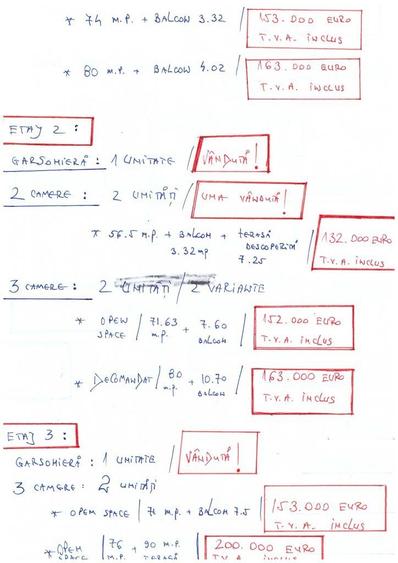 * 74 M.P. + BALCON 3.32 / 153.000 EURO
T.V.A. INCLUS
* 80 M.P. + BALCON 4.02 / 163.000 EURO
T.V.A. INCLUS
ETAJ 2 :
GARSOMIERĂ : 1 UNITATE / VÂNDUTĂ !
2 CAMERE : 2 UNITĂȚI / UNA VÂNDUTĂ !
* 56.5 M.P. + BALCON + TERASĂ / 132.000 EURO
3.32 mp DESCOPERITĂ
7.25 T.V.A. INCLUS
3 CAMERE : 2 UNITĂȚI / 2 VARIANTE
* OPEN / 71.63 + 7.60 / 152.000 EURO
SPACE / M.P. BALCON T.V.A. INCLUS
* DECOMANDAT / 80 + 10.70 / 163.000 EURO
M.P. BALCON T.V.A. INCLUS
ETAJ 3 :
GARSOMIERĂ : 1 UNITATE / VÂNDUTĂ !
3 CAMERE : 2 UNITĂȚI
* OPEN SPACE / 71 M.P. + BALCON 7.5 / 153.000 EURO
T.V.A. INCLUS
* OPEN / 76 + 90 M.P. / 200.000 EURO
SPACE / M.P. TERASĂ T.V.A. INCLUS